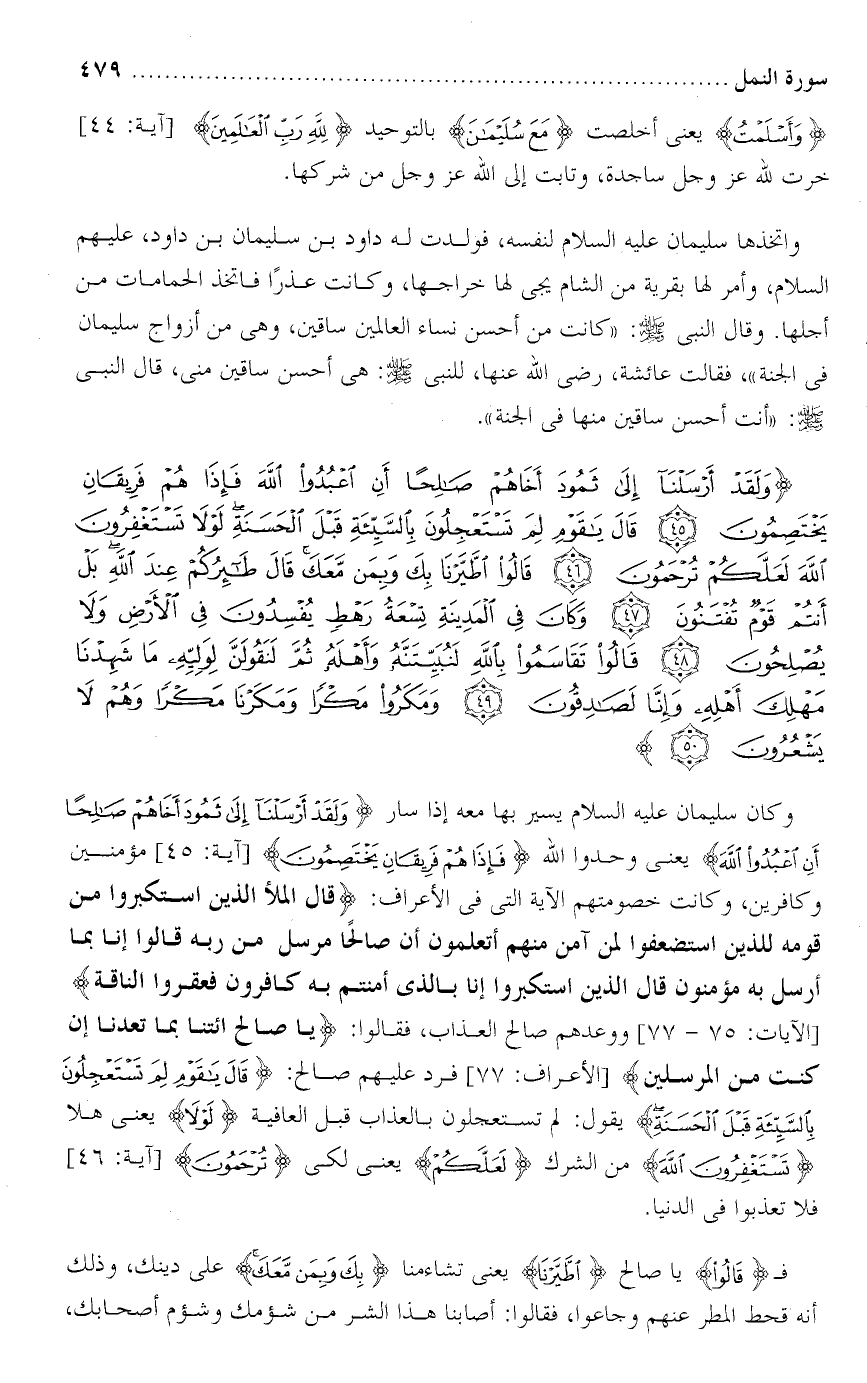 سورة النمل ........................................................................ ٤٧٩
﴿وَأَسْلَمْتُ﴾ يعنى أخلصت ﴿مَعَ سُلَيْمَٰنَ﴾ بالتوحيد ﴿لِلَّهِ رَبِّ الْعَالَمِينَ﴾ [آية: ٤٤]
خرت لله عز وجل ساجدة، وتابت إلى الله عز وجل من شركها.
واتخذها سليمان عليه السلام لنفسه، فولدت له داود بن سليمان بن داود، عليهم
السلام، وأمر لها بقرية من الشام يجى لها خراجها، وكانت عذرًا فاتخذ الحمامات من
أجلها. وقال النبى ﷺ: «كانت من أحسن نساء العالمين ساقين، وهى من أزواج سليمان
فى الجنة»، فقالت عائشة، رضى الله عنها، للنبى ﷺ: هى أحسن ساقين منى، قال النبى
ﷺ: «أنت أحسن ساقين منها فى الجنة».
﴿وَلَقَدْ أَرْسَلْنَآ إِلَىٰ ثَمُودَ أَخَاهُمْ صَٰلِحًا أَنِ ٱعْبُدُوا۟ ٱللَّهَ فَإِذَا هُمْ فَرِيقَانِ
يَخْتَصِمُونَ ٤٥ قَالَ يَٰقَوْمِ لِمَ تَسْتَعْجِلُونَ بِٱلسَّيِّئَةِ قَبْلَ ٱلْحَسَنَةِ ۖ لَوْلَا تَسْتَغْفِرُونَ
ٱللَّهَ لَعَلَّكُمْ تُرْحَمُونَ ٤٦ قَالُوا۟ ٱطَّيَّرْنَا بِكَ وَبِمَن مَّعَكَ ۚ قَالَ طَٰٓئِرُكُمْ عِندَ ٱللَّهِ ۖ بَلْ
أَنتُمْ قَوْمٌ تُفْتَنُونَ ٤٧ وَكَانَ فِى ٱلْمَدِينَةِ تِسْعَةُ رَهْطٍ يُفْسِدُونَ فِى ٱلْأَرْضِ وَلَا
يُصْلِحُونَ ٤٨ قَالُوا۟ تَقَاسَمُوا۟ بِٱللَّهِ لَنُبَيِّتَنَّهُۥ وَأَهْلَهُۥ ثُمَّ لَنَقُولَنَّ لِوَلِيِّهِۦ مَا شَهِدْنَا
مَهْلِكَ أَهْلِهِۦ وَإِنَّا لَصَٰدِقُونَ ٤٩ وَمَكَرُوا۟ مَكْرًا وَمَكَرْنَا مَكْرًا وَهُمْ لَا
يَشْعُرُونَ ٥٠﴾
وكان سليمان عليه السلام يسير بها معه إذا سار ﴿وَلَقَدْ أَرْسَلْنَآ إِلَىٰ ثَمُودَ أَخَاهُمْ صَٰلِحًا
أَنِ ٱعْبُدُوا۟ ٱللَّهَ﴾ يعنى وحدوا الله ﴿فَإِذَا هُمْ فَرِيقَانِ يَخْتَصِمُونَ﴾ [آية: ٤٥] مؤمنين
وكافرين، وكانت خصومتهم الآية التى فى الأعراف: ﴿قال الملأ الذين استكبروا من
قومه للذين استضعفوا لمن آمن منهم أتعلمون أن صالحًا مرسل من ربه قالوا إنا بما
أرسل به مؤمنون قال الذين استكبروا إنا بالذى أمنتم به كافرون فعقروا الناقة﴾
[الآيات: ٧٥ - ٧٧] ووعدهم صالح العذاب، فقالوا: ﴿يا صالح ائتنا بما تعدنا إن
كنت من المرسلين﴾ [الأعراف: ٧٧] فرد عليهم صالح: ﴿قَالَ يَٰقَوْمِ لِمَ تَسْتَعْجِلُونَ
بِٱلسَّيِّئَةِ قَبْلَ ٱلْحَسَنَةِ ۖ﴾ يقول: لم تستعجلون بالعذاب قبل العافية ﴿لَوْلَا﴾ يعنى هلا
﴿تَسْتَغْفِرُونَ ٱللَّهَ﴾ من الشرك ﴿لَعَلَّكُمْ﴾ يعنى لكى ﴿تُرْحَمُونَ﴾ [آية: ٤٦]
فلا تعذبوا فى الدنيا.
فـ ﴿قَالُوا۟﴾ يا صالح ﴿ٱطَّيَّرْنَا﴾ يعنى تشاءمنا ﴿بِكَ وَبِمَن مَّعَكَ ۚ﴾ على دينك، وذلك
أنه قحط المطر عنهم وجاعوا، فقالوا: أصابنا هذا الشر من شؤمك وشؤم أصحابك،